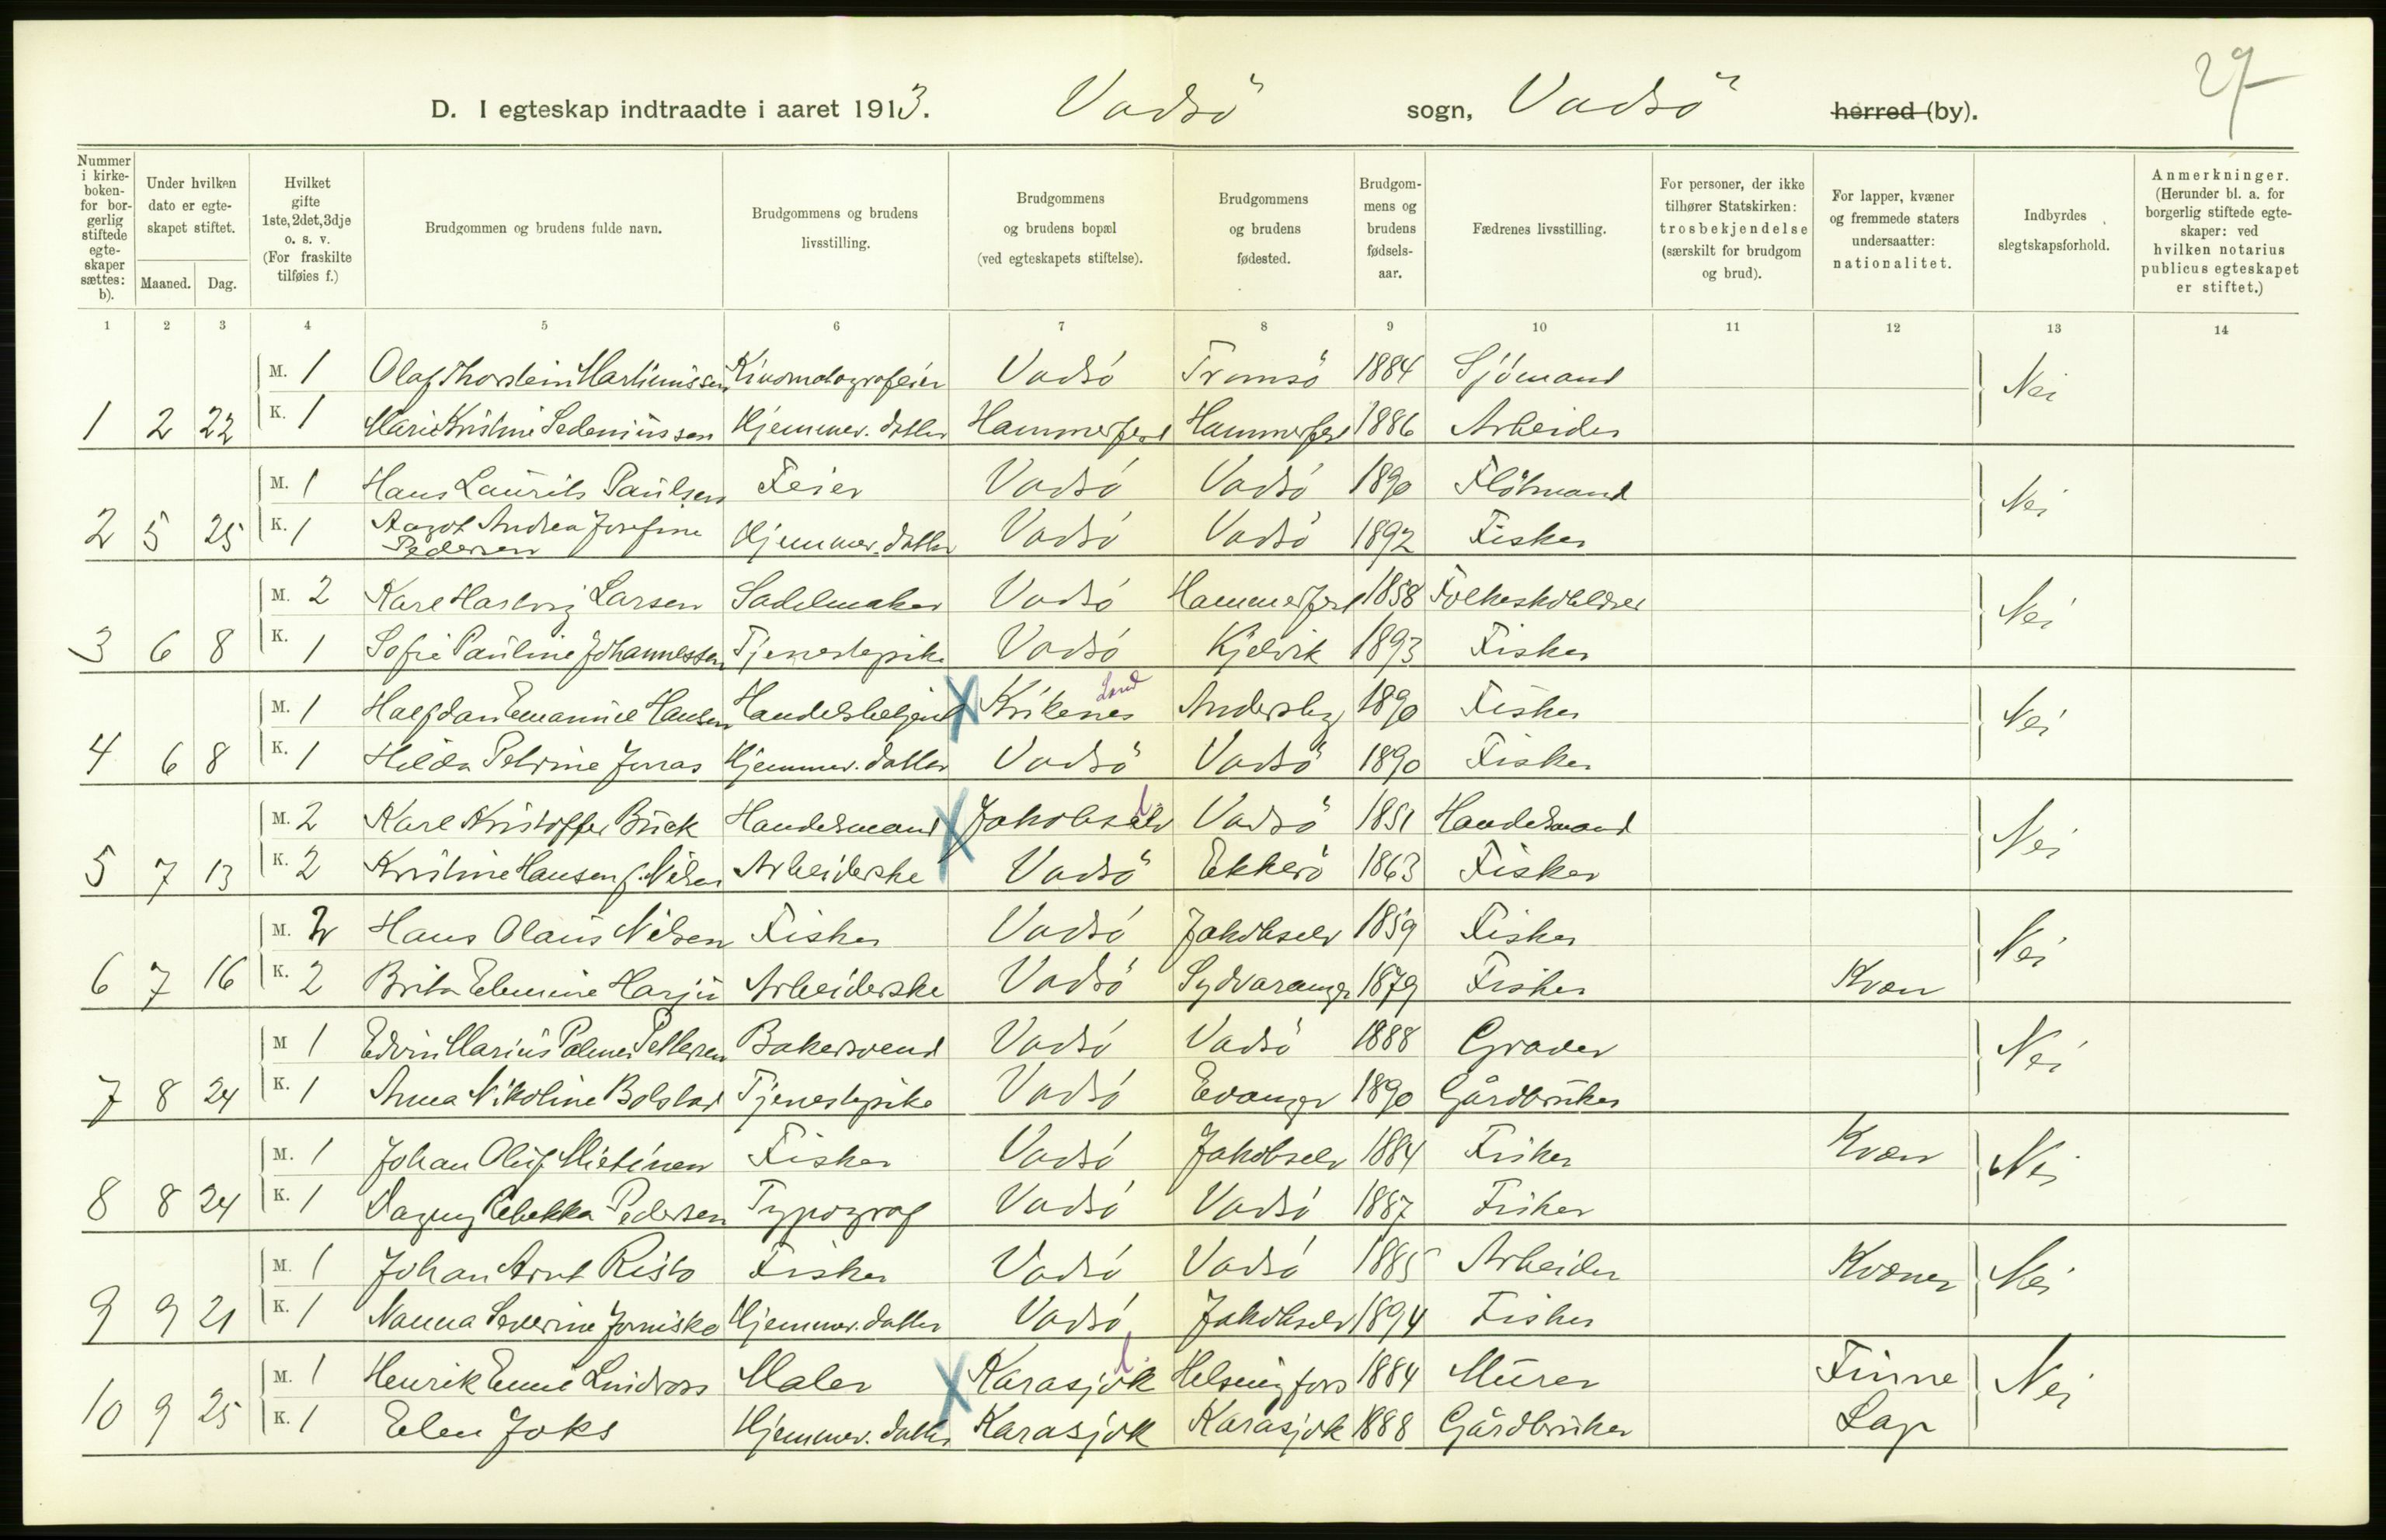 27
D. I egteskap indtraadte i aaret 1913. Vadsö sogn, Vadsö herred (by).
Nummer i kirkeboken- for borgerlig stiftede egteskaper sættes: b).
Under hvilken dato er egteskapet stiftet.
Maaned. Dag.
Hvilket gifte 1ste, 2det, 3dje o. s. v. (For fraskilte tilføies f.)
Brudgommen og brudens fulde navn.
Brudgommens og brudens livsstilling.
Brudgommens og brudens bopæl (ved egteskapets stiftelse).
Brudgommens og brudens fødested.
Brudgommens og brudens fødselsaar.
Fædrenes livsstilling.
For personer, der ikke tilhører Statskirken: trosbekjendelse (særskilt for brudgom og brud).
For lapper, kvæner og fremmede staters undersaatter: nationalitet.
Indbyrdes slegtskapsforhold.
Anmerkninger. (Herunder bl. a. for borgerlig stiftede egteskaper: ved hvilken notarius publicus egteskapet er stiftet.)
1 2 3 4 5 6 7 8 9 10 11 12 13 14
M. 1 Olaf Thorstein Martinussen Vadsó Tromsö 1884 Sjömand Nei
1 2 22 K. 1 Marie Kristine Hjemmev. datter Hammerfest Hammerfest 1886 Arbeider
M. 1 Hans Laurits Paulsen Feier Vadsó Vadsó 1890 Flötmand Nei
2 5 25 K. 1 Aagot Andrea Josefine Pedersen Hjemmev. datter Vadsó Vadsó 1892 Fisker
M. 2 Karl Hartvig Larsen Sadelmaker Vadsó Hammerfest 1858 Nei
3 6 8 K. 1 Sofie Pauline Johannessen Tjenestepike Vadsó Kjelvik 1893 Fisker
M. 1 Halfdan Emanuel Hansen Handelsbetjent X Kirkenes Land Andersby 1890 Fisker Nei
4 6 8 K. 1 Hilda Petrine Hjemmev. datter Vadsö Vadsö 1890 Fisker
M. 2 Karl Kristoffer Bück Handelsmand X Jakobselv l Vadsö 1851 Handelsmand Nei
5 7 13 K. 2 Kristine Hansen f. Nilsen Arbeiderske Vadsö Ekkerö 1863 Fisker
M. 2 Hans Olaus Nilsen Fisker Vadsó Jakobselv 1859 Fisker Nei
6 7 16 K. 2 Brita Elemine Harju Arbeiderske Vadsö Sydvaranger 1879 Fisker Kvæn
M 1 Edvin Marius Palmer Pettersen Bakersvend Vadsó Vadsó 1888 Graver Nei
7 8 24 K. 1 Anna Nikoline Bolstad Tjenestepike Vadsó Evanger 1890 Gårdbruker
M. 1 Johan Oluf Mietinen Fisker Vadsó Jakobselv 1884 Fisker Kvæn Nei
8 8 24 K. 1 Dagny Rebekka Pedersen Typograf Vadsó Vadsó 1887 Fisker
M. 1 Johan Arnt Risto Fisker Vadsó Vadsó 1885 Arbeider Kvæner Nei
9 9 21 K. 1 Nanna Severine Hjemmev. datter Vadsó Jakobselv 1894 Fisker
M. 1 Henrik Lindroos Maler X Karasjok l Helsingfors 1884 Murer Finne Nei
10 9 25 K. 1 Elen Joks Hjemmev. datter Karasjok Karasjok 1888 Gårdbruker Lap